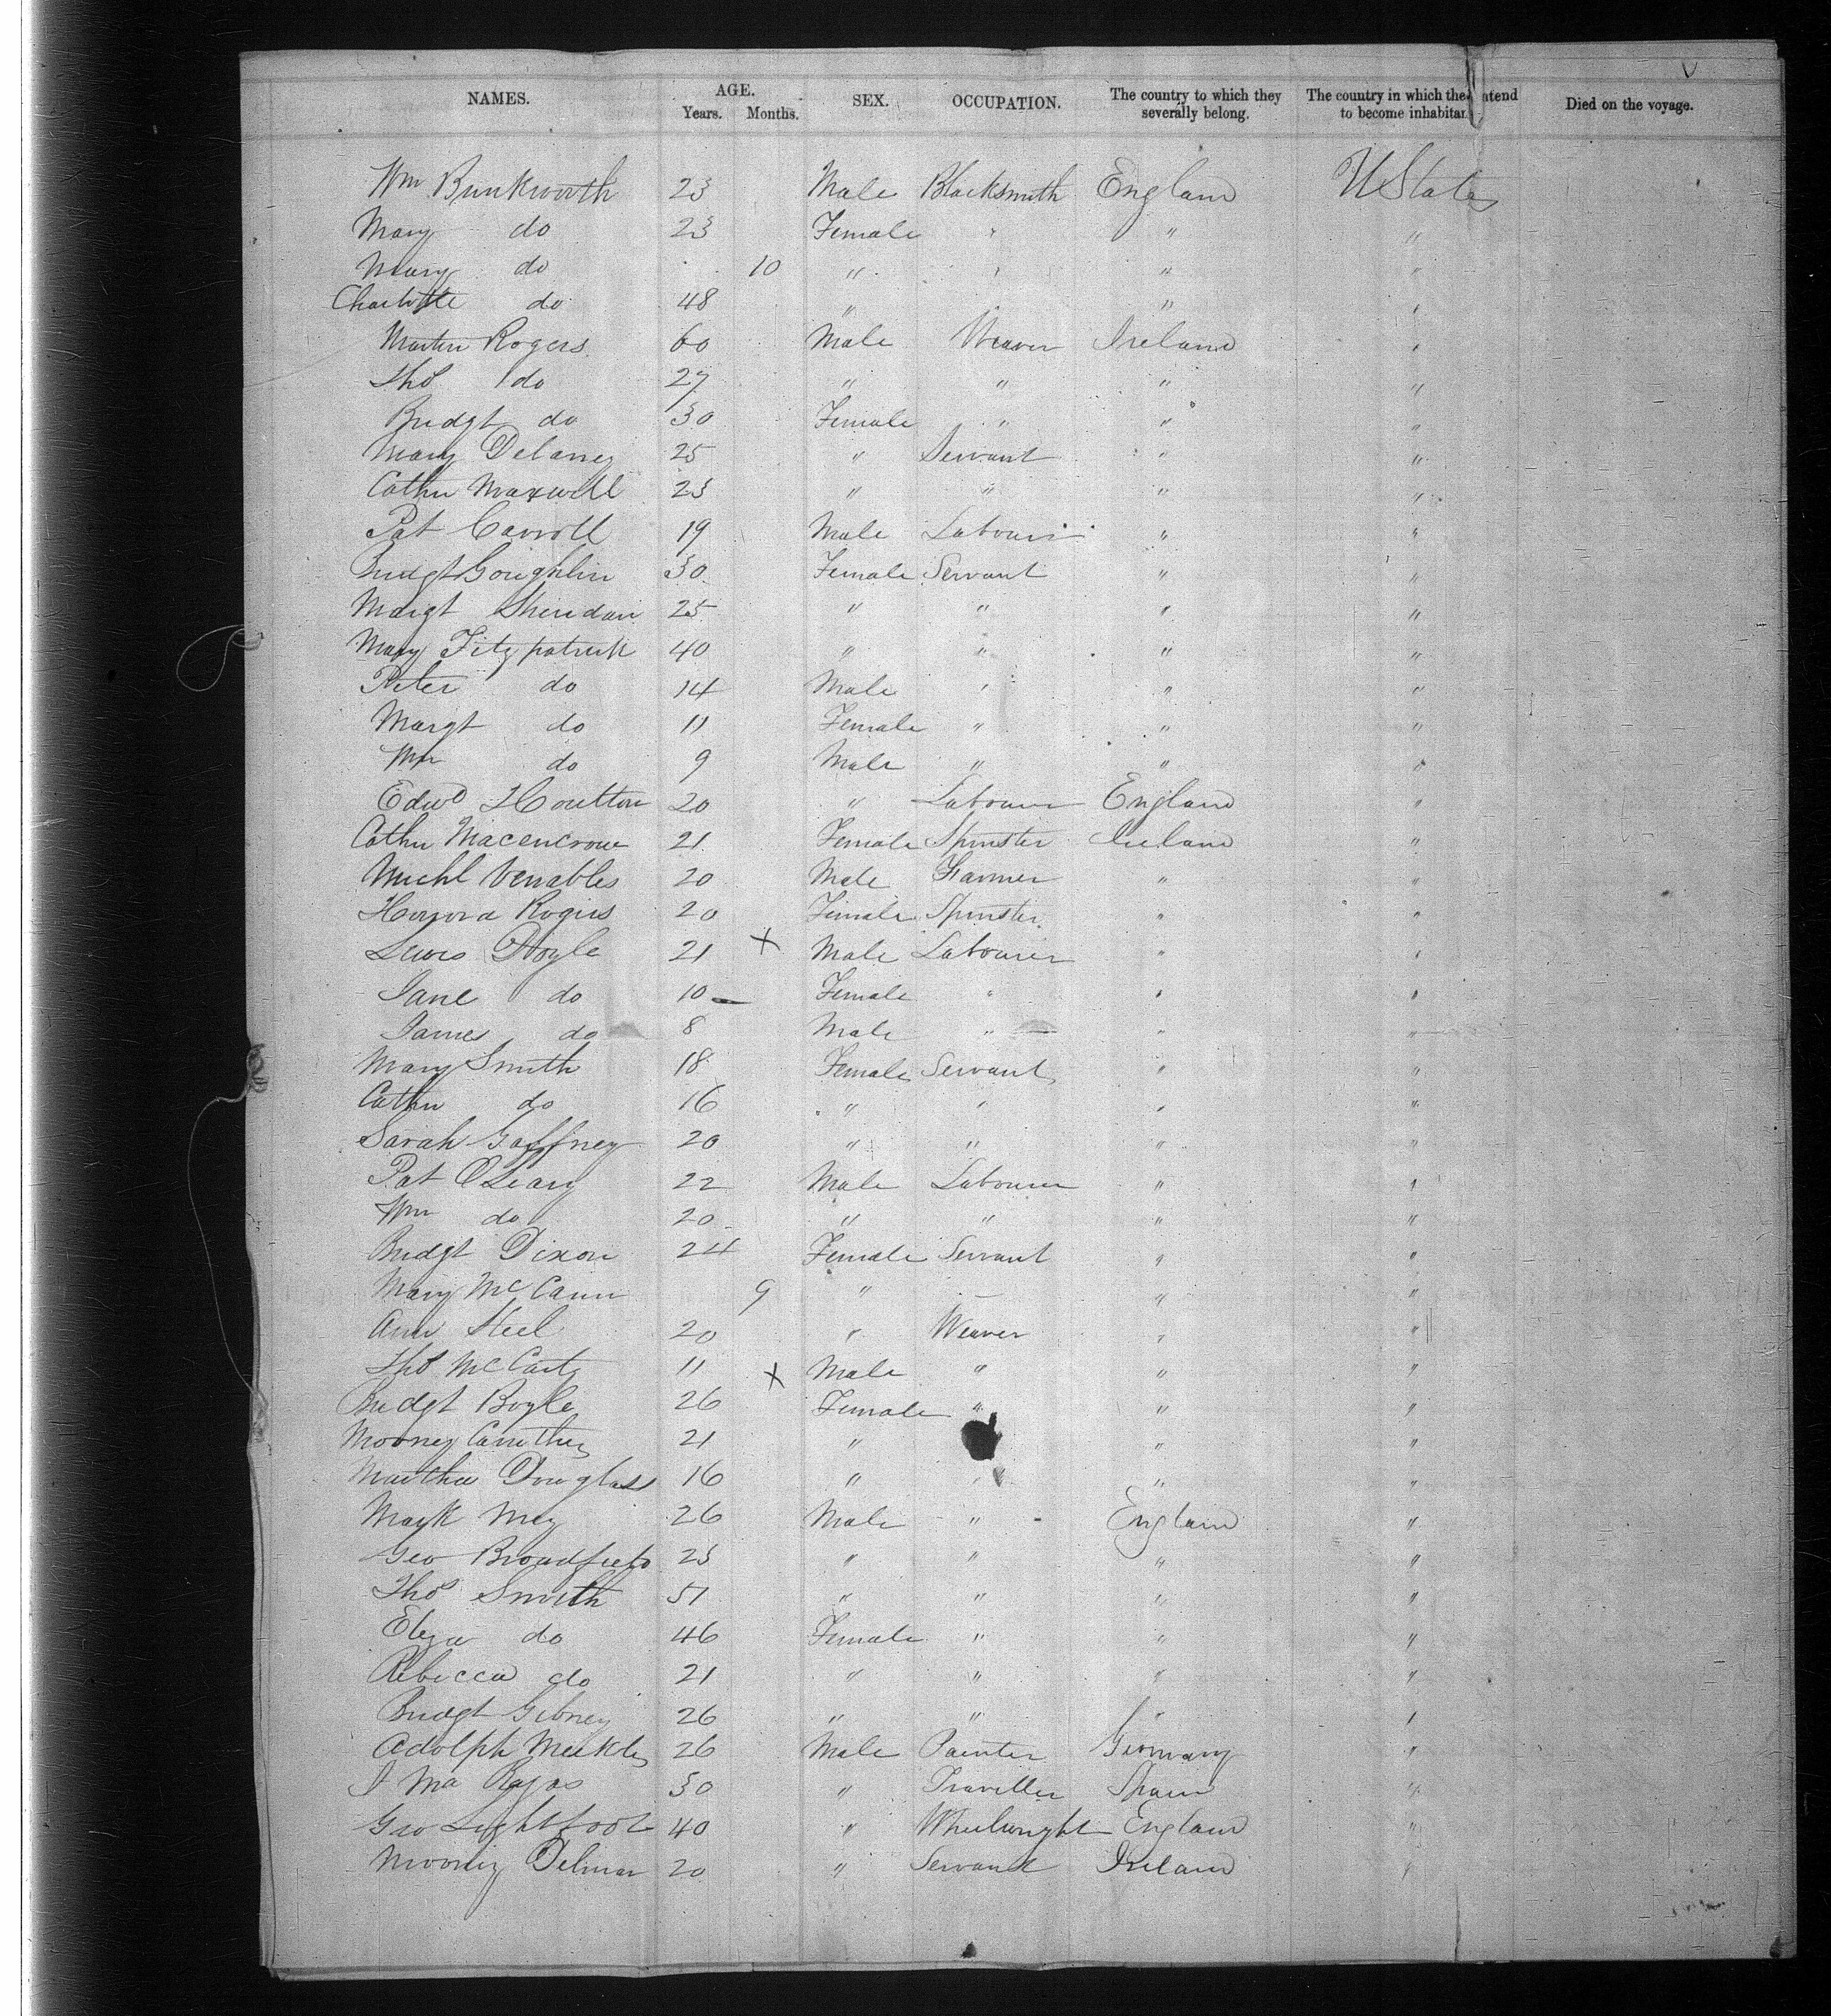 NAMES. AGE. Years. Months. SEX. OCCUPATION. The country to which they severally belong. The country in which they intend to become inhabitan Died on the voyage.
Wm Bunkworth 23 Male Blacksmith England U States
Mary do 23 Female " " "
Mary do 10 " " " "
Charlotte do 48 " " "
Martin Rogers 60 Male Weaver Ireland "
Thos do 27 " " " "
Bridgt do 30 Female " " "
Mary Delaney 25 " Servant " "
Cathn Maxwell 23 " " " "
Pat Carroll 19 Male Labourer " "
Bridgt Goughlin 30 Female Servant " "
Margt Sheridan 25 " " " "
Mary Fitzpatrick 40 " " " "
Peter do 14 Male " " "
Margt do 11 Female " " "
Wm do 9 Male " " "
Edwd Houlton 20 " Labourer England "
Cathn 21 Female Spinster Ireland "
Michl Venables 20 Male Farmer " "
Honora Rogers 20 Female Spinster " "
Lewis Doyle 21 X Male Labourer " "
Jane do 10 Female " " "
James do 8 Male " " "
Mary Smith 18 Female Servant " "
Cathn do 16 " " " "
Sarah Gaffney 20 " " " "
Pat OLeary 22 Male Labourer " "
Wm do 20 " " " "
Bridgt Dixon 24 Female Servant " "
Mary McCann 9 " — " "
Ann Steel 20 " Weaver " "
Thos McCarty 11 X Male " " "
Bridgt Boyle 26 Female " " "
Mooney 21 " " "
Martha Douglass 16 " " " "
Mark May 26 Male " England "
Geo Broadfield 23 " " " "
Thos Smith 51 " " " "
Eliza do 46 Female " " "
Rebecca do 21 " " " "
Bridgt Gibney 26 " " " "
Adolph 26 Male Painter Germany "
J Ma Rojas 30 " Traveller Spain "
Geo Lightfoot 40 " Wheelwright England "
Delmar 20 " Servant Ireland "